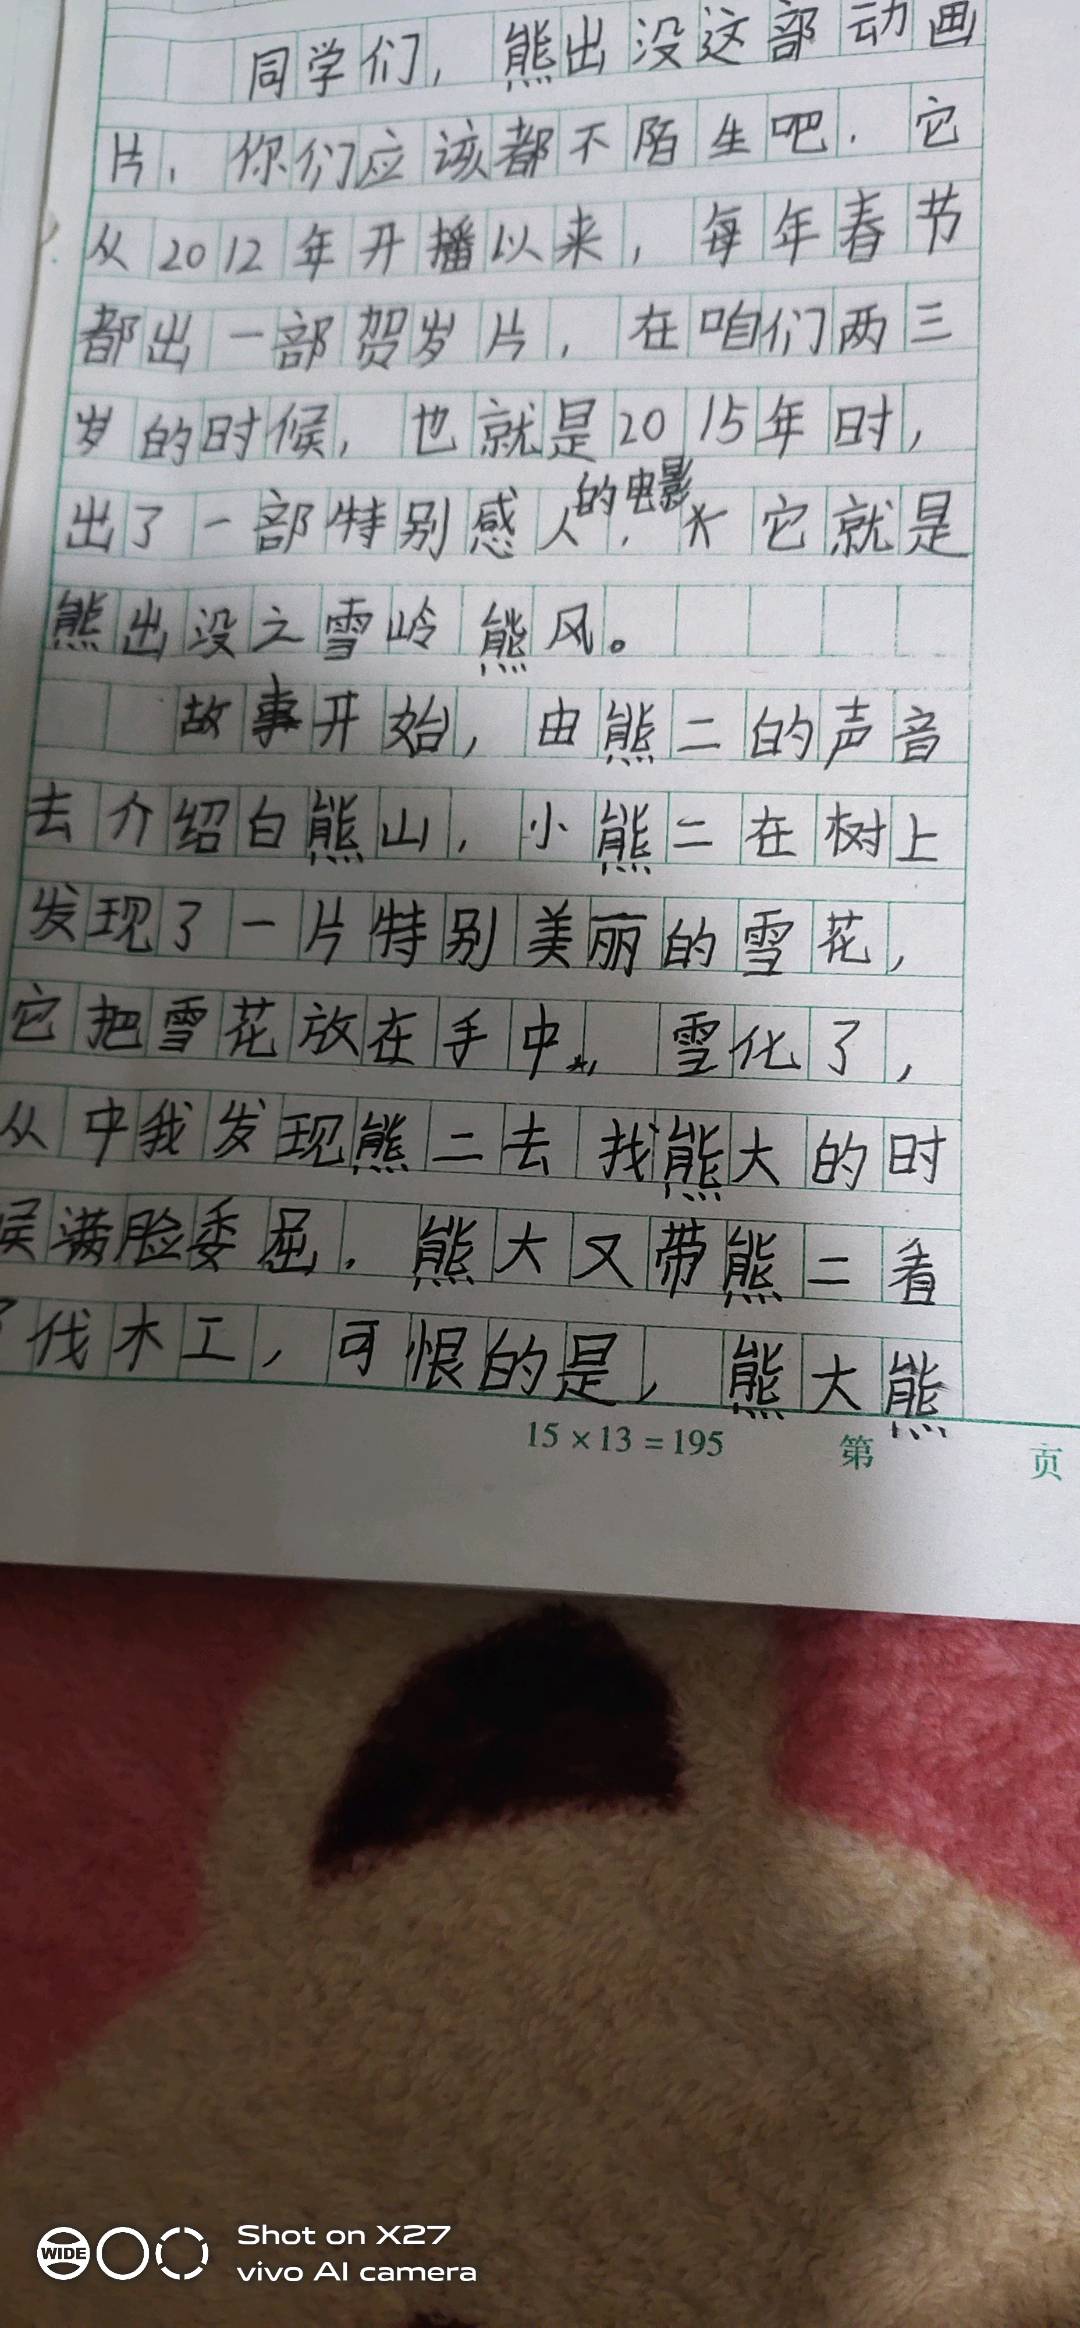 同学们，熊出没这部动画
片，你们应该都不陌生吧．它
从2012年开播以来，每年春节
都出一部贺岁片，在咱们两三
岁的时候，也就是2015年时，
出了一部特别感人的电影，它就是
熊出没之雪岭熊风。
故事开始，由熊二的声音
去介绍白熊山，小熊二在树上
发现了一片特别美丽的雪花，
它把雪花放在手中，雪化了，
从中我发现熊二去找熊大的时
候满脸委屈．熊大又带熊二看
了伐木工，可恨的是，熊大熊
15×13=195 第 页
WIDE Shot on X27
vivo AI camera